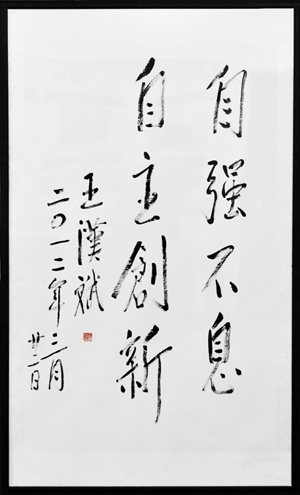 自强不息
自主創新
王漢斌
二〇一二年三月